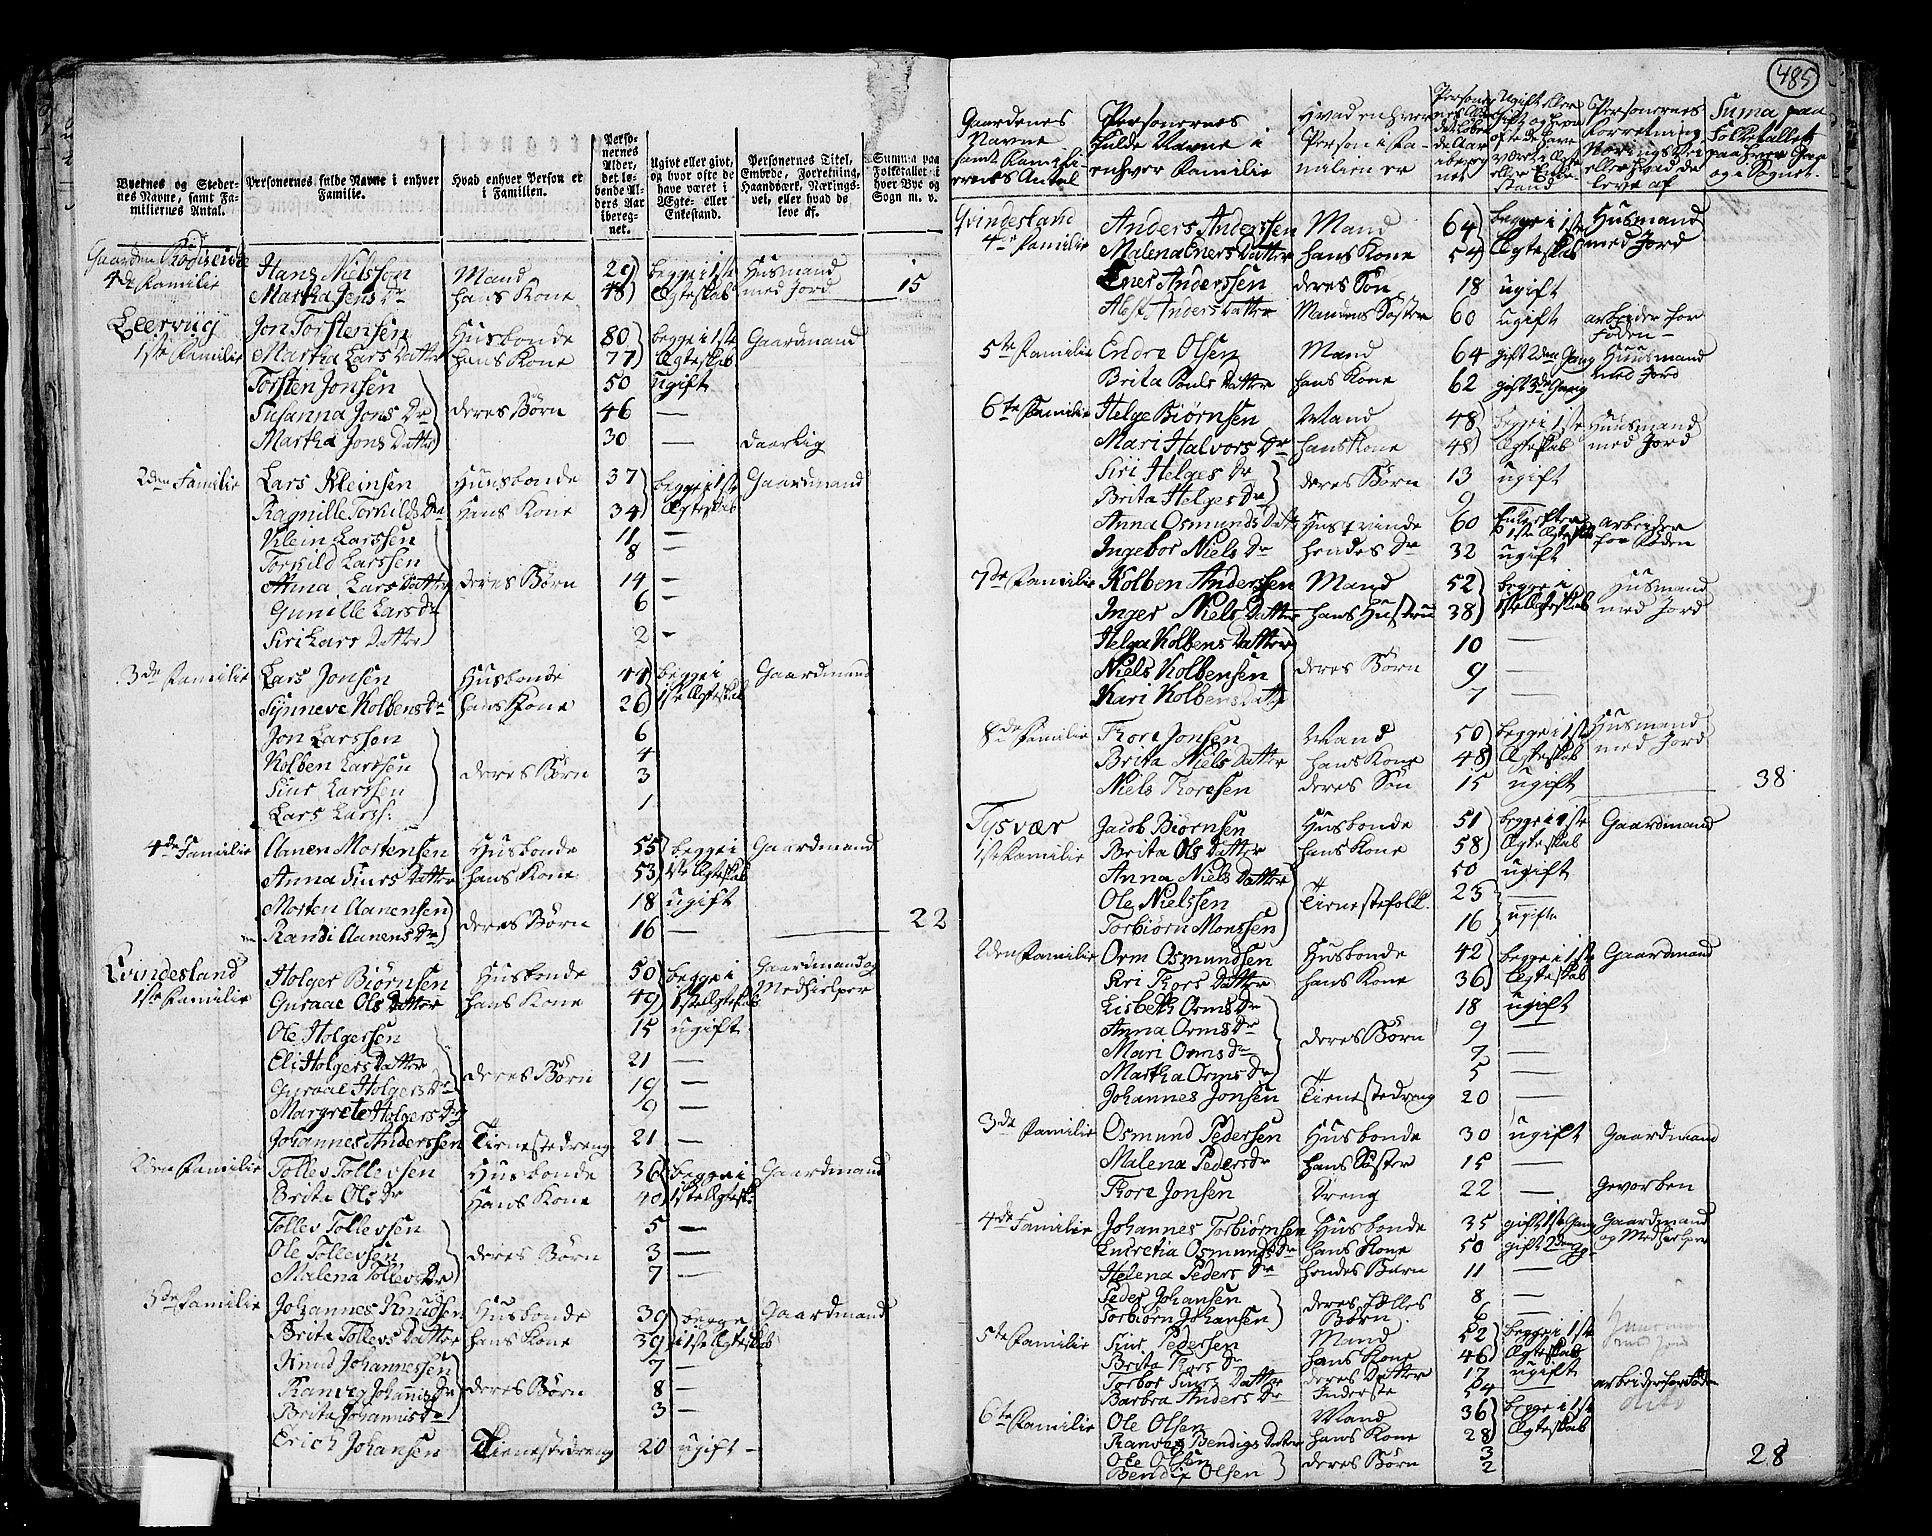 485
Byernes og Steder-
nes Navne, samt Fa-
miliernes Antal.
Personernes fulde Navne i enhver
Familie.
Hvad enhver Person er
i Familien.
Perso-
nernes
Alder,
det lø-
bende Al-
ders Aar
ibereg-
net.
Ugivt eller givt,
og hvor ofte de
have været i
Ægte- eller
Enkestand.
Personernes Titel,
Embede, Forretning,
Haandværk, Nærings-
vei, eller hvad de
leve af.
Summa paa
Folketallet i
hver Bye og
Sogn m. v.
Gaarden
4de Familie Hans Nielsson Mand 29 begge i 1ste Huusmand
Martha Jens Dr hans Kone 48 Ægteskab med Jord 15
Leervüg Jon Torstensen Husbonde 80 begge i 1ste Gaardmand
1ste Familie Martha Lars Datter hans Kone 77 Ægteskab
Torsten Jonsen 50 ugift
Susanna Jons Dr deres Børn 46 —
Martha Jons Datter 30 — daarlig
2den Familie Lars Kleinsen Huusbonde 37 begge i 1ste Gaardmand
Ragnille Torkilds Dr Hans Kone 34 Ægteskab
Klein Larssen 11 —
Torkild Larssen 8
Anna Lars Datter deres Børn 14 —
Gunille Lars Dr 6 —
Siri Lars Datter 2 —
3de Familie Lars Jonsen Husbonde 44 begge i Gaardmand
Synneve Kolbens Dr hans Kone 26 1ste Ægteskab
Jon Larssen 6
Kolben Larssen 4
Siur Larssen deres Børn 3
Lars Larss: 1
4de Familie Aanen Mortensen Husbonde 55 begge i Gaardmand
Anna Siurs Datter hans Kone 53 1ste Ægteskab
Morten Aanensen 18 ugift
Randi Aanens Dr deres Børn 16 — 22
Qvindesland Holger Biørnsen Husbonde 50 begge i Gaardmand og
1ste Familie Guraae Ols Datter hans Kone 49 1ste Ægteskab Medhielper
Ole Holgersen 15 ugift
Eli Holgers Datter 21 —
Guraae Holgers Dr deres Børn 19 —
Margrete Holgers Dr 9 —
Johannes Anderssen Tienestedreng 21 —
2den Familie Tollev Tollevsen Husbonde 36 begge i Gaardmand
Brita Ols Dr Hans Kone 40 1ste Ægtesk.
Tollev Tollevsen 5 —
Ole Tollevsen deres Børn 3 —
Malena Tollevs Dr 7 —
3de Familie Johannes Knudsen Husbonde 39 begge Gaardmand
Brita Tollevs Datter hans Kone 39 i 1ste Ægteskab
Knud Johannessen 7 —
Ranveg Johannis Dr deres Børn 8 —
Brita Johannis Dr 3 —
Erich Johansen Tienestedreng 20 ugift —
Gaardenes
Navne
samt Famili-
ernes Antal
Personernes
fulde Navne i
enhver Familie
Hvad enhver
Person i Fa-
milien er
Suma paa
Folketallet
paa hver Gaar
og i Sognet.
Qvindesland Anders Anderssen Mand 64 begge i 1ste Husmand
4de Familie Malena Eners Datter hans Kone 54 Ægteskab med Jord
Ener Anderssen deres Søn 18 ugift
Anders Datter Mandens Søster 60 ugift arbeider for
Føden
5te Familie Endre Olsen Mand 64 gift 2den Gang Huusmand
Brita Pouls Datter hans Kone 62 gift 3de Gang med Jord
6te Familie Helge Biørnsen Mand 48 begge i 1ste Huusmand
Mari Halvors Dr hans Kone 48 Ægteskab med Jord
Siri Helges Dr deres Børn 13 ugift
Brita Helges Dr 9
Anna Osmunds Datt Huusqvinde 60 Enke efter arbeider
Ingebor Niels Dr hendes Dr 32 1ste Ægteskab ugift for Føden
7de Familie Kolben Anderssen Mand 52 begge i Husmand
Inger Niels Datter hans Hustru 38 1ste Ægteskab med Jord
Helga Kolbens Datter 10 —
Niels Kolbensen deres Børn 9 —
Kari Kolbens Datter 7 —
8de Familie Thore Jonsen Mand 50 begge i 1ste Husmand
Brita Niels Datter hans Kone 48 Ægteskab med Jord
Niels Thoresen deres Søn 15 ugift 38
Tysvær Jacob Biørnsen Husbonde 51 begge i 1ste Gaardmand
1ste Familie Brita Ols Datter hans Kone 58 Ægteskab
Anna Niels Datter 50 ugift
Ole Nielssen Tienestefolk. 23 —
Torbiørn Monssen 16 ugifte
2den Familie Orm Osmundsen Husbonde 42 begge i 1ste Gaardmand
Siri Thors Datter hans Kone 36 Ægteskab
Lisbeth Orms Dr 18 ugift
Anna Orms Dr deres Børn 9 —
Mari Orms Dr 7 —
Martha Orms Dr 5 —
Johannes Jonsen Tienestedreng 20 —
3de Familie Osmund Pedersen Husbonde 30 ugift Gaardmand
Malena Peders Dr hans Søster 15 —
Thore Jonsen Dreng 22 — Gevorben
4de Familie Johannes Torbiørnsen Husbonde 35 gift 1ste Gang Gaardmand
Lucretia Osmunds Dr hans Kone 50 gift 2den Gg og Medhielper
Helena Peders Dr hendes Barn 11 —
Peder Johansen deres fælles 8 —
Torbiørn Johansen Børn 6 —
5te Familie Siur Pedersen Mand 52 begge i 1ste Huusmand
Brita Thors Dr hans Kone 46 Ægteskab med Jord
Torbor Siurs Datter deres Datter 17 ugift
Barbra Anders Dr Inderste 54 — arbeider for Føden
6te Familie Ole Olsen Mand 36 begge i 1ste dito
Ranveg Bendigs Datter hans Kone 28 Ægteskab
Ole Olsen deres Børn 3
Bendix Olsen 2 28